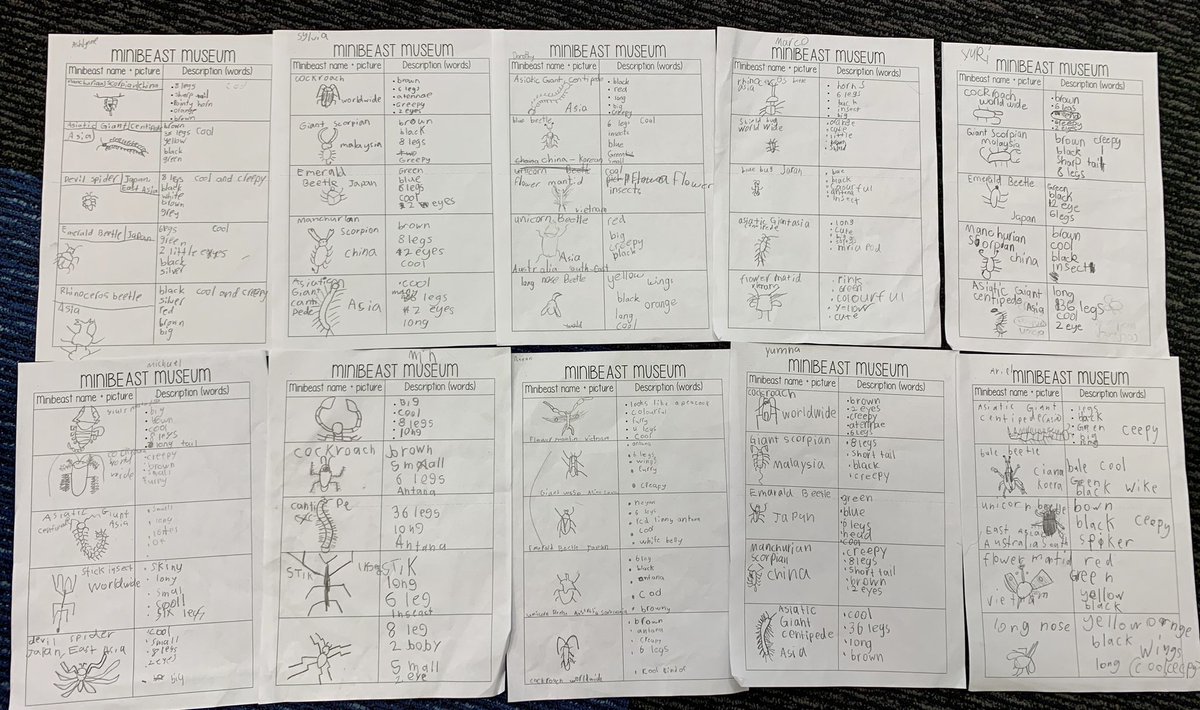 Ashlynne
MINIBEAST MUSEUM
Minibeast name • picture
Description (words)
Manchurian Scorpian China
8 legs cool
• sharp tail
• Pointy horn
• orange
• brown
Asiatic Giant Centipede
Asia
brown
36 legs cool
yellow
black
green
Devil spider Japan
East Asia
8 legs cool and creepy
black
white
brown
grey
Emerald Beetle Japan
6legs cool
green
2 little eyes
black
silver
Rhinoceros beetle
Asia
black cool and creepy
silver
red
brown
big
Sylvia
MINIBEAST MUSEUM
Minibeast name • picture
Description (words)
cockroach
worldwide
• brown
• 6 legs
• atennae
• Greepy
• 2 eyes
Giant Scorpian
malaysia
brown
black
8 legs
Greepy
Emerald
Beetle Japan
Green
blue
8 legs
cool
2 eyes
manchurian
Scorpion
china
brown
8 legs
2 eyes
cool
Asiatic
Giant
canti
Pede
Asia
• cool
legs
2 eyes
long
Dorothy
MINIBEAST MUSEUM
Minibeast name • picture
Description (words)
Asiatic Giant Centipede
Asia
• black
• red
• long
• big
• creepy
blue beetle
china - Korean
6 legs cool
insects
blue
Small
Flower mantid
vietnam
cool
Flower
insects
unicorn Beetle
Asia
Australia south-East
red
big
creepy
black
long nose Beetle
world
yellow wings
black orange
long
cool
Marco
MINIBEAST MUSEUM
Minibeast name • picture
Description (words)
asia
• horns
• 6 legs
• insect
• big
world wide
• orange
• cute
• little
blue bug Japan
• blue
• black
• colourful
• antana
• insect
asiatic Giantasia
centipede
• long
• cute
flower matid
• pink
• green
• colourful
• yellow
• cute
Yuri
MINIBEAST MUSEUM
Minibeast name • picture
Description (words)
cockroach
world wide
brown
6 legs
creepy
2 eyes
Giant Scorpian
malaysia
brown creepy
black
sharp tail
8 legs
Emerald Beetle
Japan
Green
black
2 eye
6legs
Manchurian
Scorpian
china
brown
cool
black
insect
Asiatic Giant
centipede Asia
long
36 legs
cool
2 eye
Michael
MINIBEAST MUSEUM
Minibeast name • picture
Description (words)
• big
• bown
• cool
• 8 legs
• long tail
wide
• creepy
• brown
• small
• furry
Asiatic Giant
centipede Asia
• small
• long
Stick insect
worldwide
• skiny
• lony
• small
• cooll
• six legs
devil spider
Japan, East Asia
• cool
• small
• 8 legs
• 2 eyes
MINIBEAST MUSEUM
Minibeast name • picture
Description (words)
• BIG
• cool
• 8 legs
• long
cockroach
brown
small
6 legs
Antana
canti Pe
36 legs
long
Antana
STiK
STIK
long
6 leg
Inscect
8 leg
2 boby
small
2 eye
MINIBEAST MUSEUM
Minibeast name • picture
Description (words)
Flower mantin vietnam
• looks like a peacock
• colourful
• furry
• cool
• antana
• 6 legs
• wings
• furry
• creapy
Emerald Beetle Japan
• 6 legs
• cool
• white belly
• black
• antana
• cool
• browny
cockroach worldwide
• brown
• antara
• creapy
• 6 legs
• cool kind of
yumna
MINIBEAST MUSEUM
Minibeast name • picture
Description (words)
cockroach
worldwide
• brown
• 2 eyes
• creepy
• atennae
• 6legs
Giant scorpian
Malaysia
• 8legs
• short tail
• black
• creepy
Emerald Beetle
Japan
• green
• blue
• 6legs
• head
• cool
Manchurian
scorpian
china
• creepy
• 8legs
• short tail
• brown
• 2 eyes
Asiatic
Giant
centipede
Asia
• cool
• 36 legs
• long
• brown
Ariel
MINIBEAST MUSEUM
Minibeast name • picture
Description (words)
Asiatic Giant
centipede
• legs
• back
• Green
• big
ceepy
bule beetle
ciana
koera
bule cool
Green
black wike
unicorn beetle
East asia
Australia South
bown
black ceepy
spiker
flower mantid
vietnam
red
Green
yellow
black
long nose
yellow orange
black wings
long cool ceepy